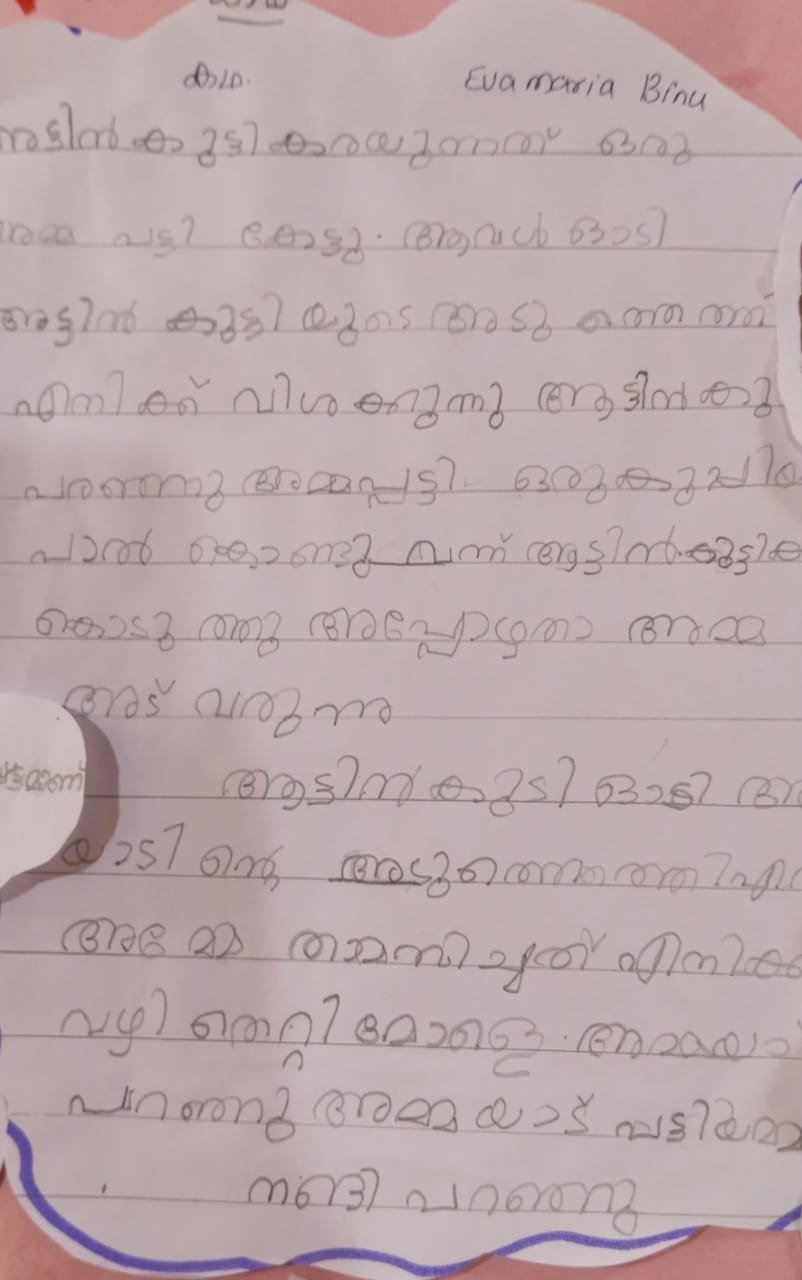 കഥ. Eva maria Binu
ആട്ടിൻ കുട്ടി കരയുന്നത് ഒരു
അമ്മ പട്ടി കേട്ടു. ആവൾ ഓടി
അട്ടിൻ കുട്ടി യുടെ അടു ത്തെത്തി
എനിക്ക് വിശക്കുന്നു ആട്ടിൻകു
പറഞ്ഞു അമ്മപ്പട്ടി. ഒരുകുപ്പി
പാൽ കൊണ്ടു വന്ന് ആട്ടിൻകുട്ടിക
കൊടു ത്തു അപ്പോഴതാ അമ്മ
അട് വരുന്നു
ആട്ടിൻകുട്ടി ഓടി അ
യാടി ന്റെ അടുത്തെത്തി
അമ്മേ താമസിച്ചത് എനിക്ക
വഴി തെറ്റി മോളെ. അമ്മയോ
പറഞ്ഞു അമ്മ യാട് പട്ടിയമ്മ
നന്ദി പറഞ്ഞു